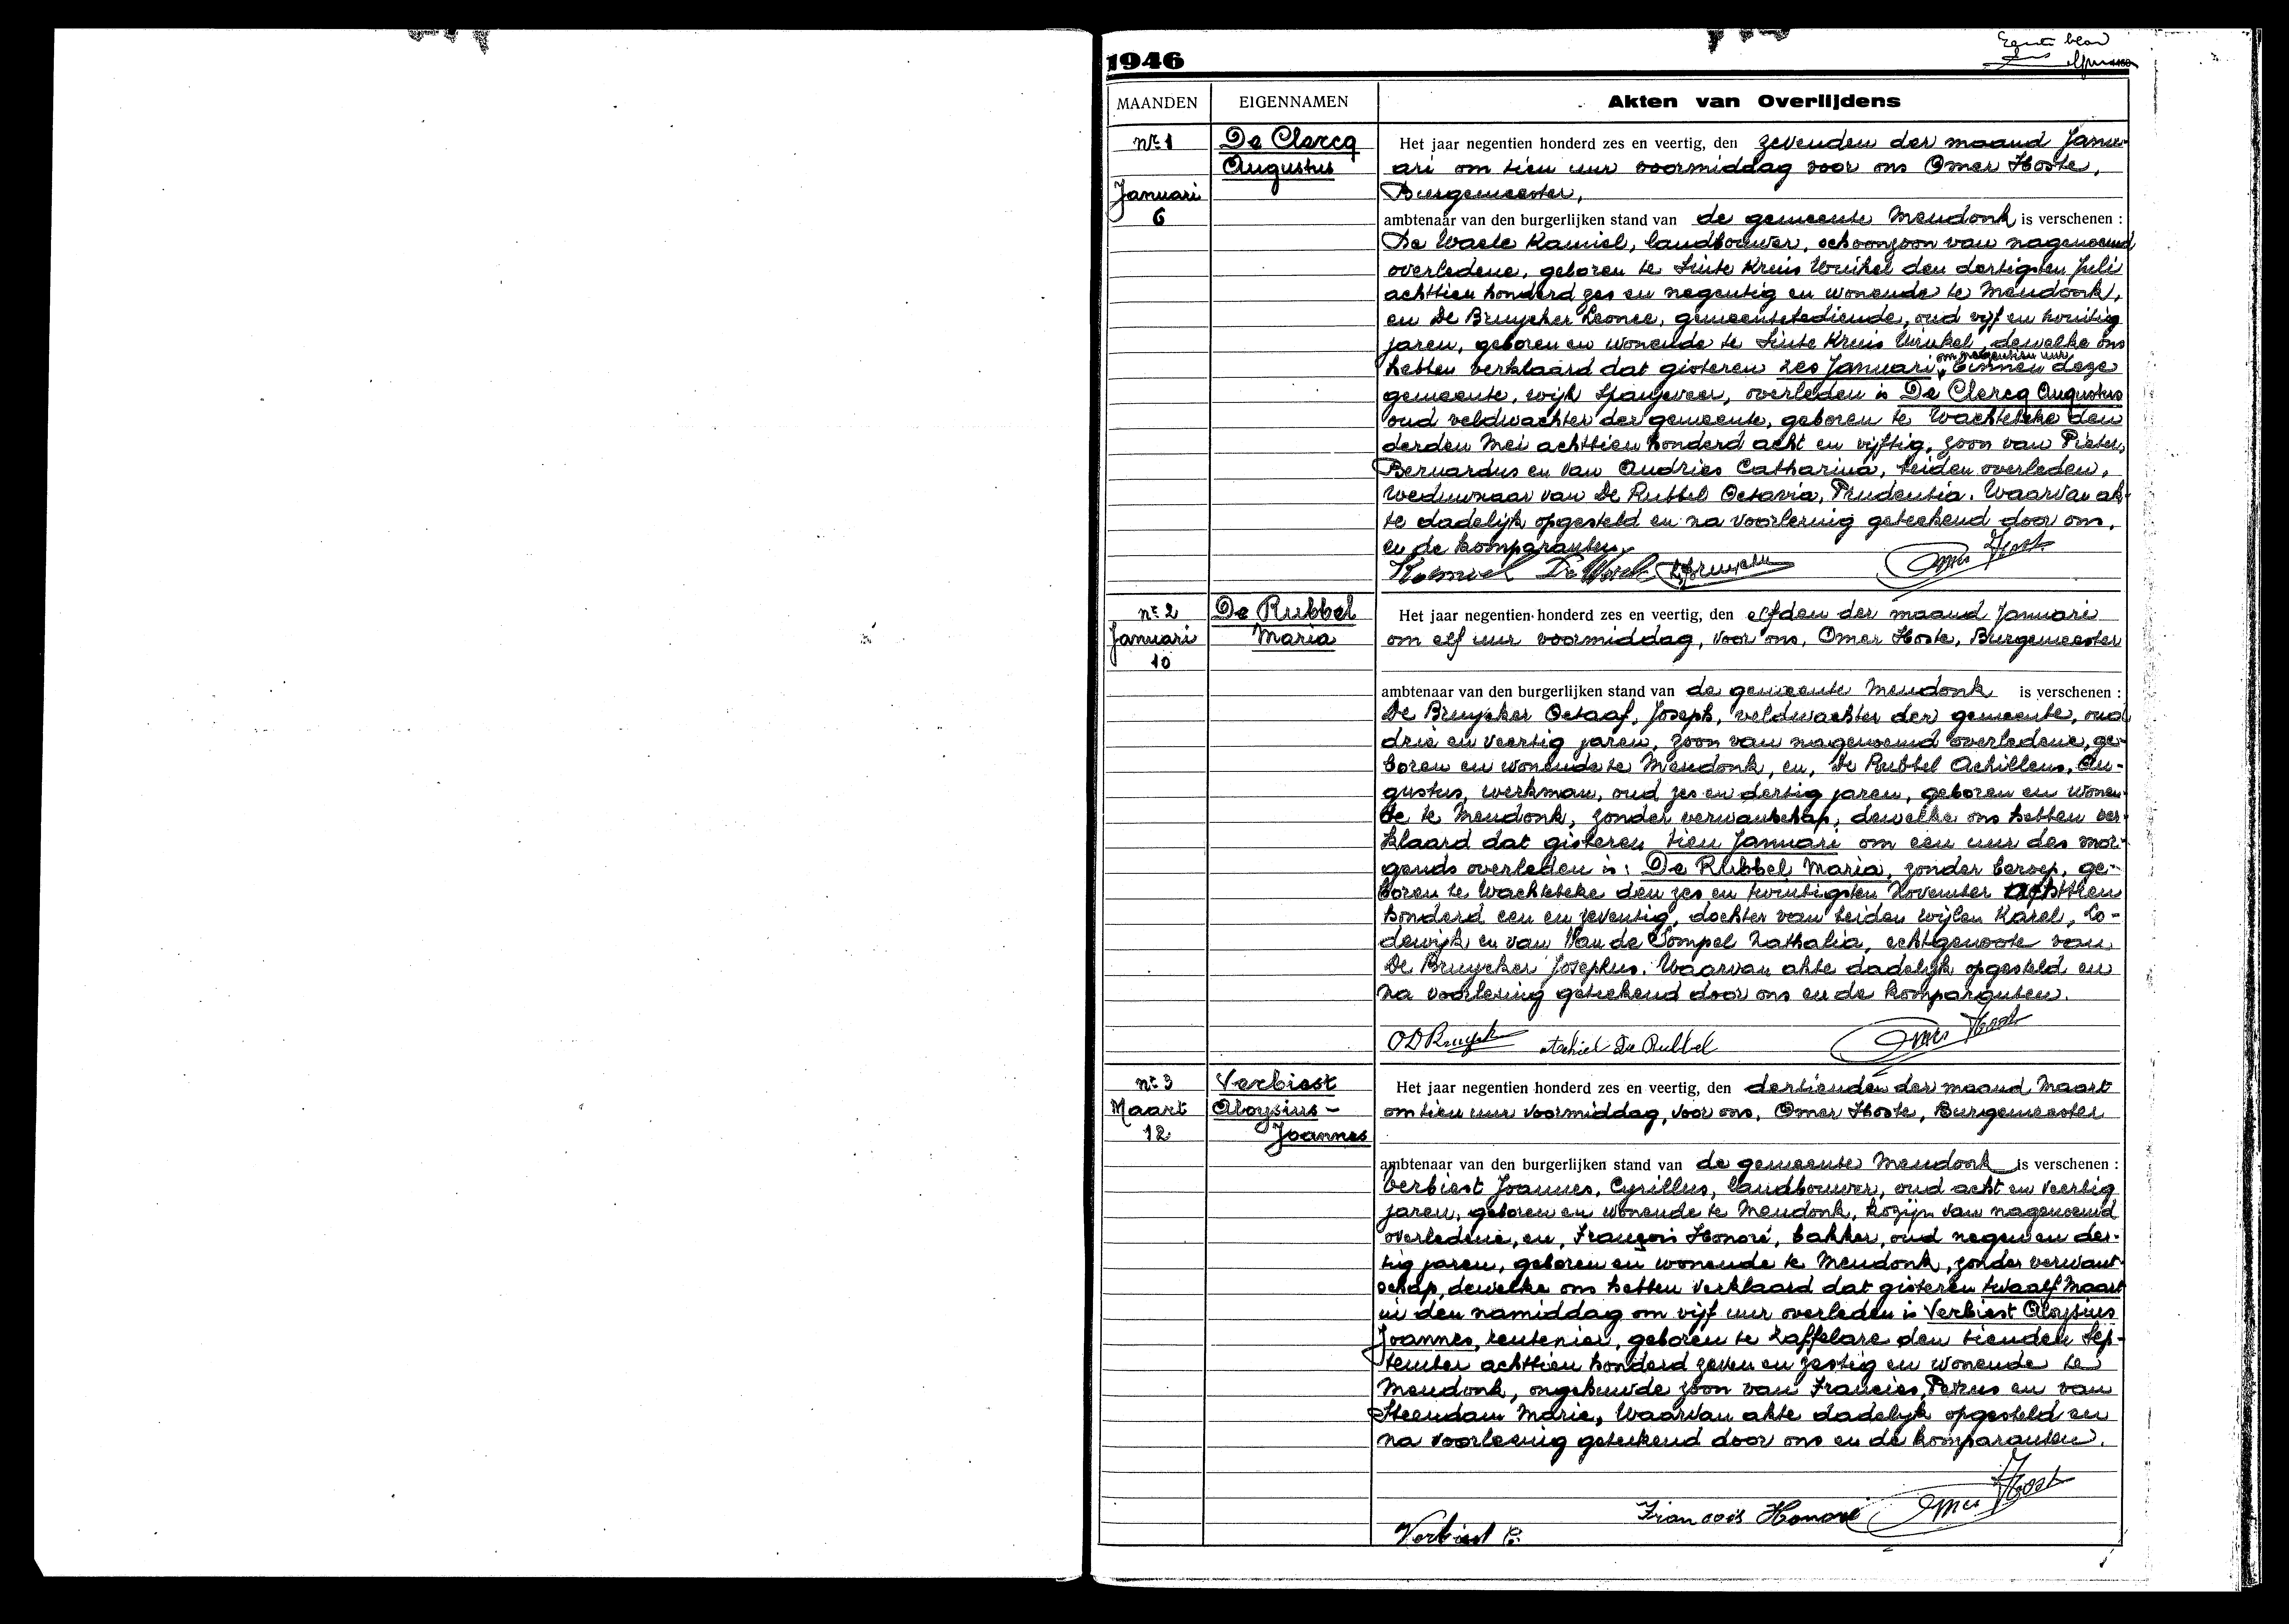 1946
Eerste blad
MAANDEN EIGENNAMEN Akten van Overlijdens
Nr 1
Januari
6
De Clercq
Augustus
Het jaar negentien honderd zes en veertig, den zevenden der maand Janu-
ari om tien uur voormiddag voor ons Omer Hoste,
Burgemeester,
ambtenaar van den burgerlijken stand van de gemeente Mendonk is verschenen :
De Waele Kamiel, landbouwer, schoonzoon van nagenoemd
overledene, geboren te Sinte Kruis Winkel den dertigsten Juli
achttien honderd zes en negentig en wonende te Mendonk,
en De Bruycker Leonce, gemeentebediende, oud vijf en twintig
jaren, geboren en wonende te Sinte Kruis Winkel, dewelke ons
hebben verklaard dat gisteren zes Januari om negentien uur binnen deze
gemeente, wijk Spanjeveer, overleden is De Clercq Augustus
oud veldwachter der gemeente, geboren te Wachtebeke den
derden Mei achttien honderd acht en vijftig, zoon van Pieter,
Bernardus en van Andries Catharina, beiden overleden,
weduwnaar van De Rubbel Octavia, Prudentia. Waarvan ak-
te dadelijk opgesteld en na voorlezing geteekend door ons,
en de komparanten.
Kamiel De Waele LDBruycker Omer Hoste
Nr 2
Januari
10
De Rubbel
Maria
Het jaar negentien honderd zes en veertig, den elfden der maand Januari
om elf uur voormiddag, voor ons, Omer Hoste, Burgemeester
ambtenaar van den burgerlijken stand van de gemeente Mendonk is verschenen :
De Bruycker Octaaf, Joseph, veldwachter der gemeente, oud
drie en veertig jaren, zoon van nagenoemd overledene, ge-
boren en wonende te Mendonk, en, De Rubbel Achilleus, Au-
gustus, werkman, oud zes en dertig jaren, geboren en wonen-
de te Mendonk, zonder verwantschap, dewelke ons hebben ver-
klaard dat gisteren tien Januari om een uur des mor-
gends overleden is: De Rubbel Maria, zonder beroep, ge-
boren te Wachtebeke den zes en twintigsten November achttien
honderd een en zeventig, dochter van beiden wijlen Karel, Lo-
dewijk en van Van de Sompel Nathalia, echtgenoote van
De Bruycker Josephus. Waarvan akte dadelijk opgesteld en
na voorlezing geteekend door ons en de komparanten.
O D Bruyck Achiel De Rubbel Omer Hoste
Nr 3
Maart
12
Verbiest
Aloysius-
Joannes
Het jaar negentien honderd zes en veertig, den dertienden der maand Maart
om tien uur voormiddag, voor ons, Omer Hoste, Burgemeester
ambtenaar van den burgerlijken stand van de gemeente Mendonk is verschenen :
Verbiest Joannes, Cyrillus, landbouwer, oud acht en veertig
jaren, geboren en wonende te Mendonk, kozijn van nagenoemd
overledene, en, François Honoré, bakker, oud negen en der-
tig jaren, geboren en wonende te Mendonk, zonder verwant-
schap, dewelke ons hebben verklaard dat gisteren twaalf Maart
in den namiddag om vijf uur overleden is Verbiest Aloysius
Joannes, rentenier, geboren te Zaffelare den tienden Sep-
tember achttien honderd zeven en zestig en wonende te
Mendonk, ongehuwde zoon van Francies, Petrus en van
Steendam Marie, Waarvan akte dadelijk opgesteld en
na voorlezing geteekend door ons en de komparanten.
Verbiest C. François Honoré Omer Hoste